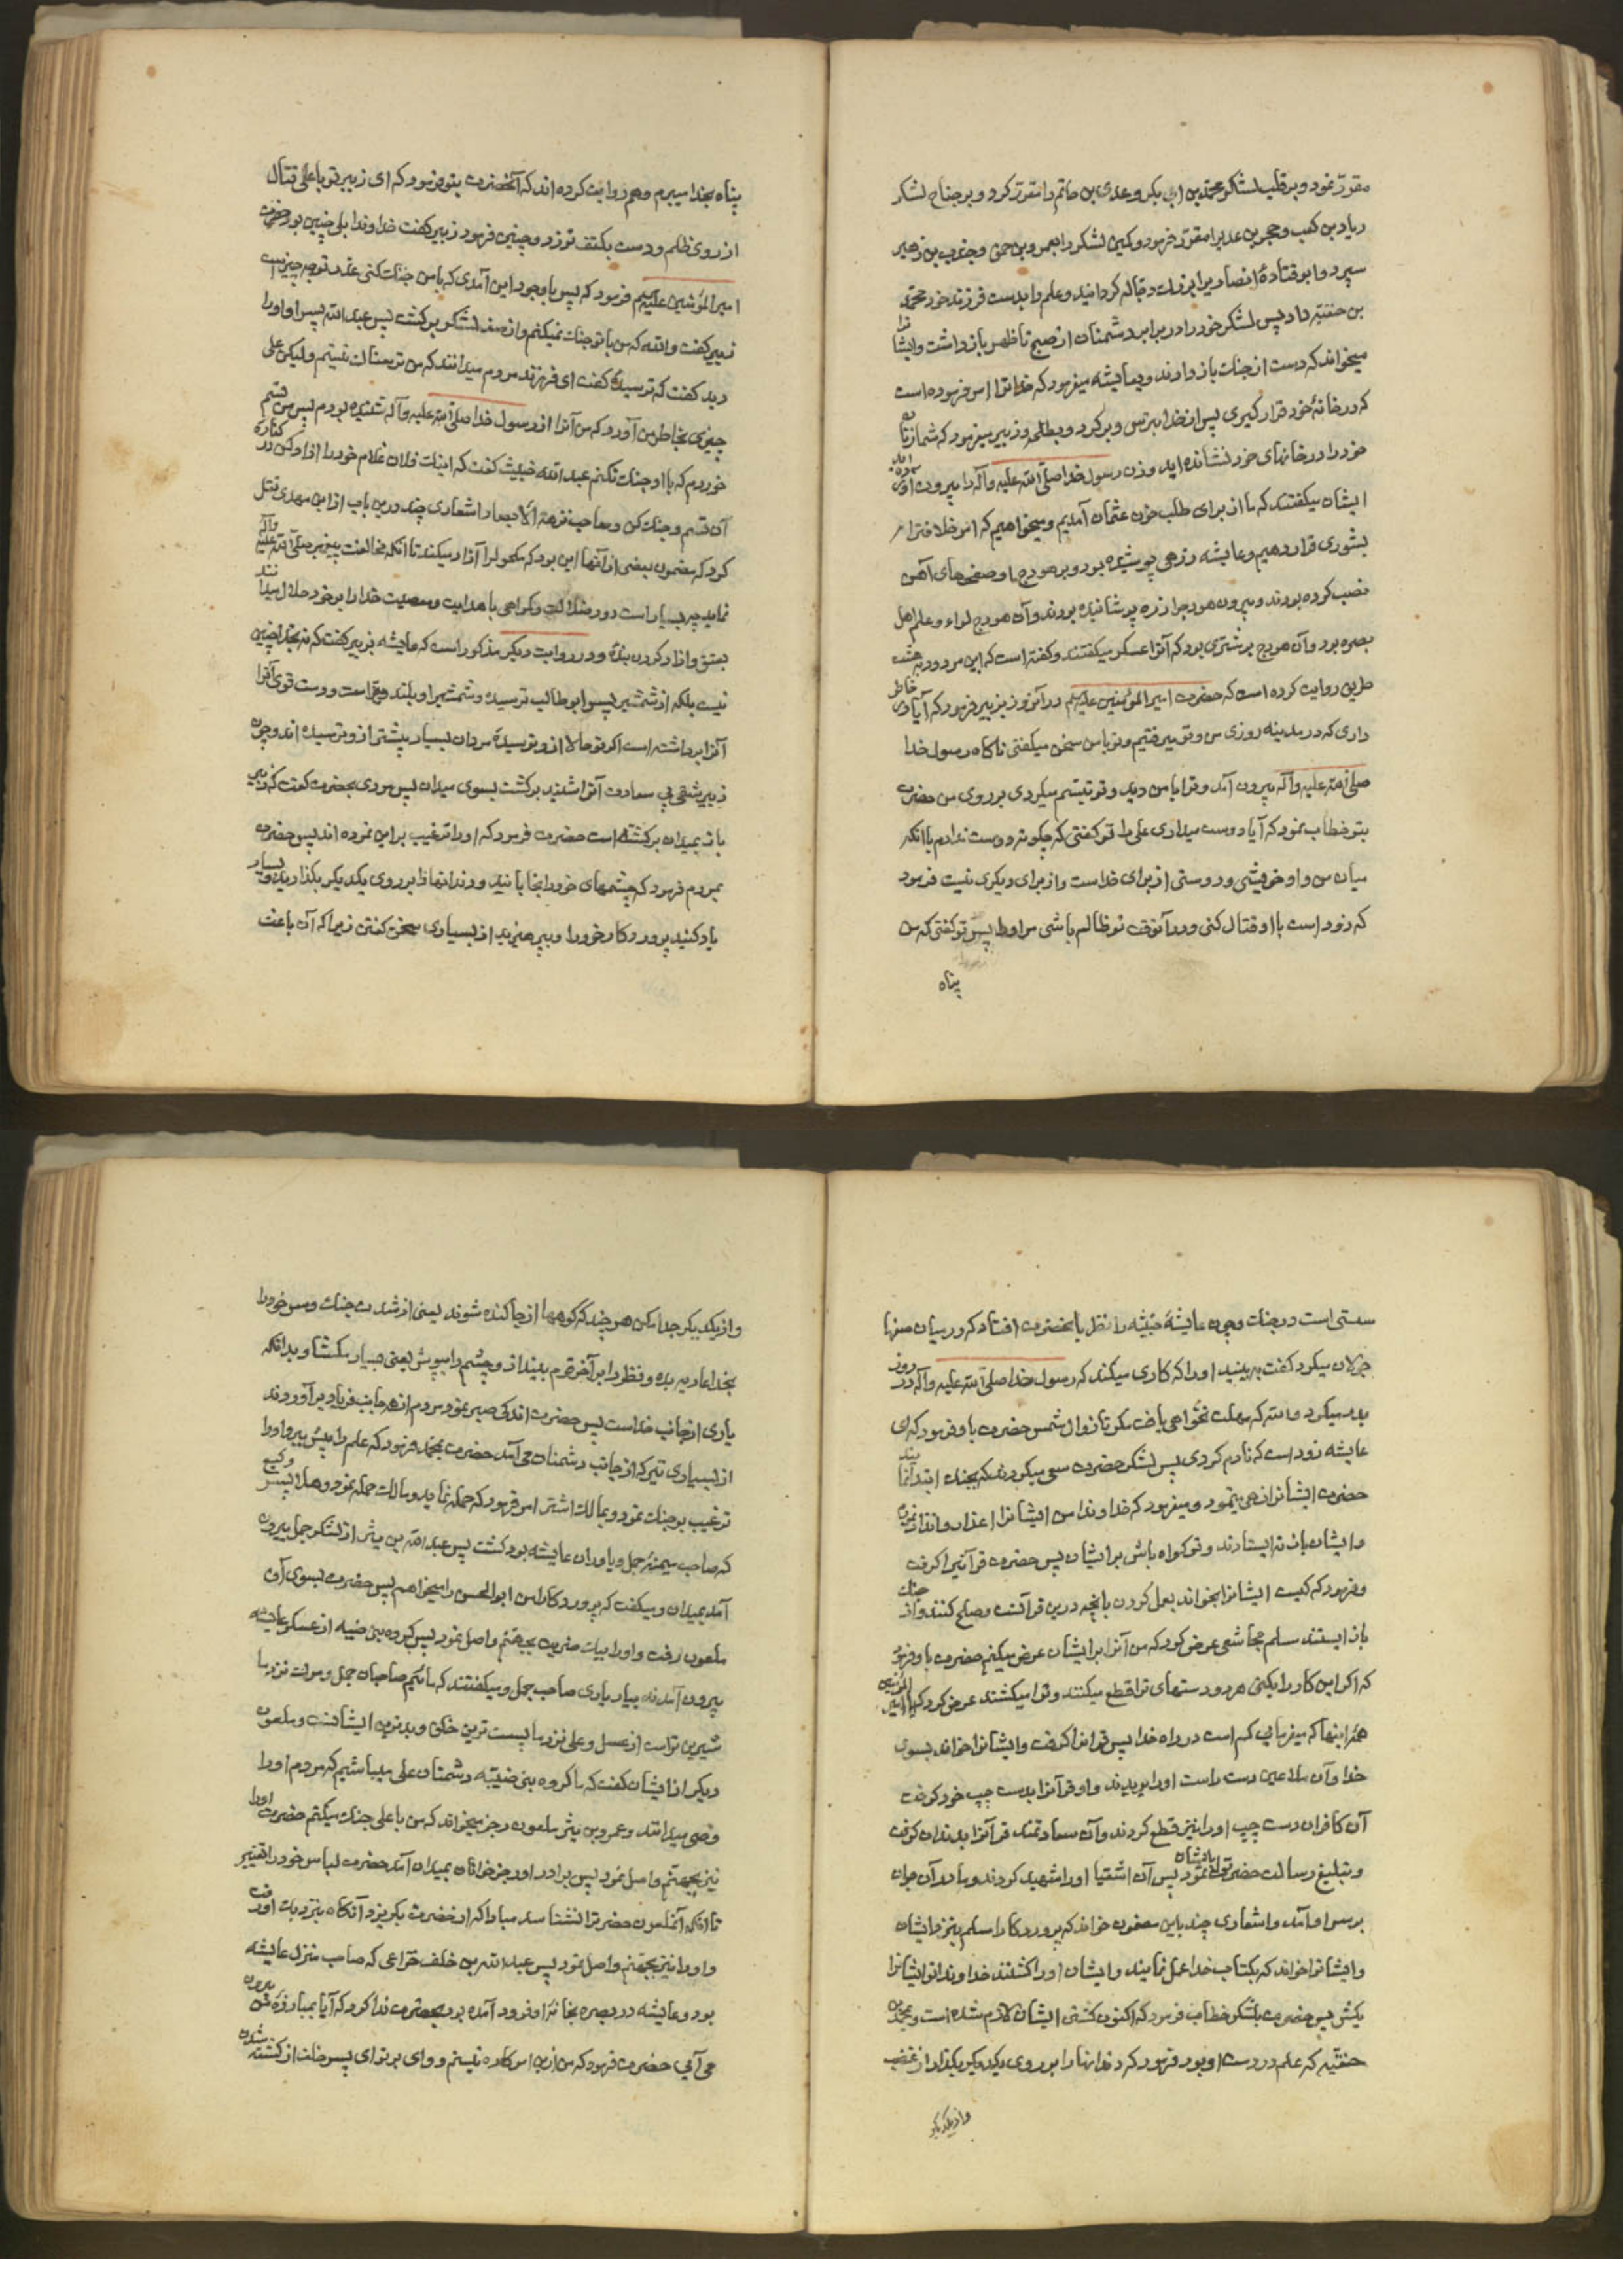 مقرر نمود و بر قلب لشکر محمد بن ابی بکر و عدی بن حاتم را مقرر کرد و بر جناح لشکر
زیاد بن کعب و حجر بن عدیرا مقرر فرمود و کمین لشکر را بعمرو بن حمق و جندب بن زهیر
سپرد و ابو قتادهٔ انصاریرا بر رجاله کردانید و علم را بدست فرزند خود محمد
بن حنفیه داد پس لشکر خود را در برابر دشمنان از صبح تا ظهر باز داشت و ایشانرا
میخواند که دست از جنک باز دارند و بعایشه میفرمود که خدا ترا امر فرموده است
که در خانهٔ خود قرار کیری پس از خدا بترس و برکرد و بطلحه و زبیر میفرمود که شما زنان
خود را در خانهای خود نشانده اید و زن رسول خدا صلی الله علیه وآله را بیرون آورده اید
ایشان میکفتند که ما از برای طلب خون عثمان آمدیم و میخواهیم که امر خلافترا
بشوری قرار دهیم و عایشه زرهی پوشیده بود و بر هودج او صفحهای آهن
نصب کرده بودند و بیرون هودجرا زره پوشانیده بودند و آن هودج لواء و علم اهل
بصره بود و آن هودج بر شتری بود که آنرا عسکر میکفتند و کفته است که ابن مردویه بهشت
طریق روایت کرده است که حضرت امیر المؤمنین علیه السلم در آنروز بزبیر فرمود که آیا در خاطر
داری که در مدینه روزی من و تو میرفتیم و تو با من سخن میکفتی ناکاه رسول خدا
صلی الله علیه وآله بیرون آمد و ترا با من دید و تو تبسم میکردی بر روی من حضرت
بتو خطاب نمود که آیا دوست میداری علی را تو کفتی که چکونه دوست ندارم با آنکه
میان من و او خویشی و دوستی از برای خداست و از برای دیکری نیست فرمود
که زود است با او قتال کنی و در آنوقت تو ظالم باشی مر او را پس تو کفتی که من
پناه
پناه بخدا میبرم و هم روایت کرده اند که آنحضرت بتو فرمود که ای زبیر تو با علی قتال
از روی ظلم و دست بکتف تو زد و چنین فرمود زبیر کفت خداوندا بلی چنین بود حضرت
امیر المؤمنین علیه السلم فرمود که پس با وجود این آمدی که با من جنک کنی عذر تو چه چیز است
زبیر کفت والله که من با تو جنک نمیکنم و از صف لشکر برکشت پس عبد الله پسر او او را
دید کفت که ترسیدهٔ کفت ای فرزند مردم میدانند که من ترسناک نیستم ولیکن علی
چیزی بخاطر من آورد که من آنرا از رسول خدا صلی الله علیه وآله شنیده بودم پس من قسم
خوردم که با او جنک نکنم عبد الله خبیث کفت که اینک فلان غلام خود را آزاد کن در کفاره
آن قسم و جنک کن و صاحب نزهة الابصار اشعاری چند درین باب از ابن مهدی نقل
کرد که مضمون بعضی از آنها این بود که مکحولرا آزاد میکند تا آنکه مخالفت پیغمبر صلی الله علیه وآله
نماید چه بسیار است دور ضلالت و کمراهی با هدایت و معصیت خدا را بر خود حلال میدانند
بعتق و آزاد کردن بندهٔ و در روایت دیکر مذکور است که عایشه بزبیر کفت که نه بخدا چنین
نیست بلکه از شمشیر پسر ابو طالب ترسیدهٔ و شمشیر او بلند و تیز است و دست قوی آنرا
آنرا برداشته است اکر تو حالا از و ترسیدهٔ مردان بسیار پیشتر از و ترسیده اند و چون
زبیر شقی بی سعادت آنرا شنید برکشت بسوی میدان پس مردی بحضرت کفت که زبیر
باز بمیدان برکشته است حضرت فرمود که او را ترغیب بر این نموده اند پس حضرت
بمردم فرمود که چشمهای خود را بخابانید و دندانها را بر روی یکدیکر بکذارید و بسیار
یاد کنید پروردکار خود را و بپرهیزید از بسیاری سخن کفتن زیرا که آن باعث
سستی است در جنک و چون عایشهٔ خبیثه را نظر بآنحضرت افتاد که در میان صفها
جولان میکرد کفت به بینید او را که کاری میکند که رسول خدا صلی الله علیه وآله در روز
بدر میکرد والله که مهلت نخواهی یافت مکر تا زوال شمس حضرت باو فرمود که ای
عایشه زود است که نادم کردی پس لشکر حضرت سعی میکردند که بجنک ابتدا نمایند
حضرت ایشانرا نهی مینمود و میفرمود که خداوندا من ایشانرا اعذار و انذار نمودم
و ایشان باز نه ایستادند و تو کواه باش بر ایشان پس حضرت قرآنیرا کرفت
و فرمود که کیست ایشانرا بخواند بعمل کردن بآنچه درین قرآنست و صلح کنند و از جنک
باز ایستند مسلم مجاشعی عرض کرد که من آنرا بر ایشان عرض میکنم حضرت باو فرمود
که اکر این کار را بکنی هر دو دستهای ترا قطع میکنند و ترا میکشند عرض کرد که یا امیر المؤمنین
همهٔ اینها که میفرمایی کم است در راه خدا پس قرآنرا کرفت و ایشانرا خواند بسوی
خدا و آن ملاعین دست راست او را بریدند و او قرآنرا بدست چپ خود کرفت
آن کافران دست چپ او را نیز قطع کردند و آن سعادتمند قرآنرا بدندان کرفت
و تبلیغ رسالت حضرترا بایشان نمود پس آن اشقیا او را شهید کردند و مادر آن جوان
بر سر او آمد و اشعاری چند باین مضمون خواند که پروردکارا مسلم بنزد ایشان
و ایشانرا خواند که بکتاب خدا عمل نمایند و ایشان او را کشتند خداوندا تو ایشانرا
بکش پس حضرت بلشکر خطاب فرمود که اکنون کشتن ایشان لازم شده است و بمحمد بن
حنفیه که علم در دست او بود فرمود که دندانها را بر روی یکدیکر بکذار از غضب
و از یکدیکر
و از یکدیکر جدا مکن هر چند که کوهها از جا کنده شوند یعنی از شدت جنک و سر خود را
بخدا عاریه بده و نظر را بر آخر قوم بینداز و چشم را بپوش یعنی بسیار مکشا و بدانکه
یاری از جانب خداست پس حضرت اندکی صبر نمود مردم از هر جانب فریاد بر آوردند
از بسیاری تیر که از جانب دشمنان می آمد حضرت بمحمد فرمود که علم را پیش ببر و او را
ترغیب بر جنک نمود و بمالک اشتر امر فرمود که حمله نماید و مالک حمله نمود و هلال پسر وکیع
که صاحب میمنهٔ جمل و یاوران عایشه بود کشت پس عبد الله بن یثربی از لشکر جمل بیرون
آمد بمیدان و میکفت که پروردکارا من ابو الحسن را میخواهم پس حضرت بسوی آن
ملعون رفت و او را بیک ضربت بجهنم واصل نمود پس کروه بنی ضبه از عسکر عایشه
بیرون آمدند بیاری صاحب جمل و میکفتند که مائیم صاحبان جمل و مرک نزد ما
شیرین تر است از عسل و علی نزد ما پست ترین خلق و بدترین ایشانست و ملعون
دیکر از ایشان کفت که ما کروه بنی ضبه دشمنان علی میباشیم که مردم او را
وصی میدانند و عمرو بن یثربی ملعون رجز میخواند که من با علی جنک میکنم حضرت او را
نیز بجهنم واصل نمود پس برادر او رجز خوانان بمیدان آمد حضرت لباس خود را تغییر
تا آنکه آنملعون حضرترا نشناسد مبادا که از حضرت بکریزد آنکاه بنزدیک او رفت
و او را نیز بجهنم واصل نمود پس عبد الله بن خلف خزاعی که صاحب منزل عایشه
بود و عایشه در بصره بخانهٔ او فرود آمده بود بحضرت ندا کرد که آیا بمبارزهٔ من بیرون
می آیی حضرت فرمود که من ازین امر کاره نیستم و وای بر تو ای پسر خلف از کشته شدن